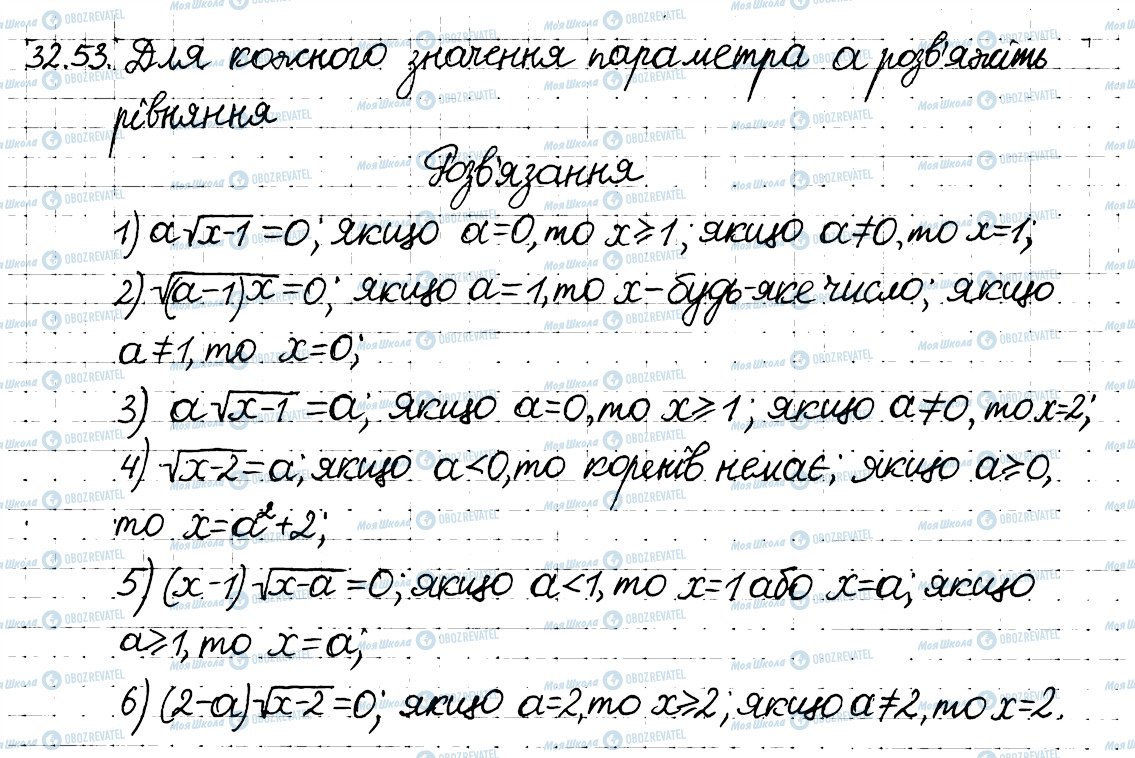 32.53. Для кожного значення параметра a розв'яжіть
рівняння
Розв'язання
1) a√(x-1) =0; якщо a=0, то x⩾1; якщо a≠0, то x=1;
2) √((a-1)x) =0; якщо a=1, то x-будь-яке число; якщо
a≠1, то x=0;
3) a√(x-1) =a; якщо a=0, то x⩾1; якщо a≠0, то x=2;
4) √(x-2) =a; якщо a<0, то коренів немає; якщо a⩾0,
то x=a²+2;
5) (x-1)√(x-a) =0; якщо a<1, то x=1 або x=a; якщо
a⩾1, то x=a;
6) (2-a)√(x-2) =0; якщо a=2, то x⩾2; якщо a≠2, то x=2.